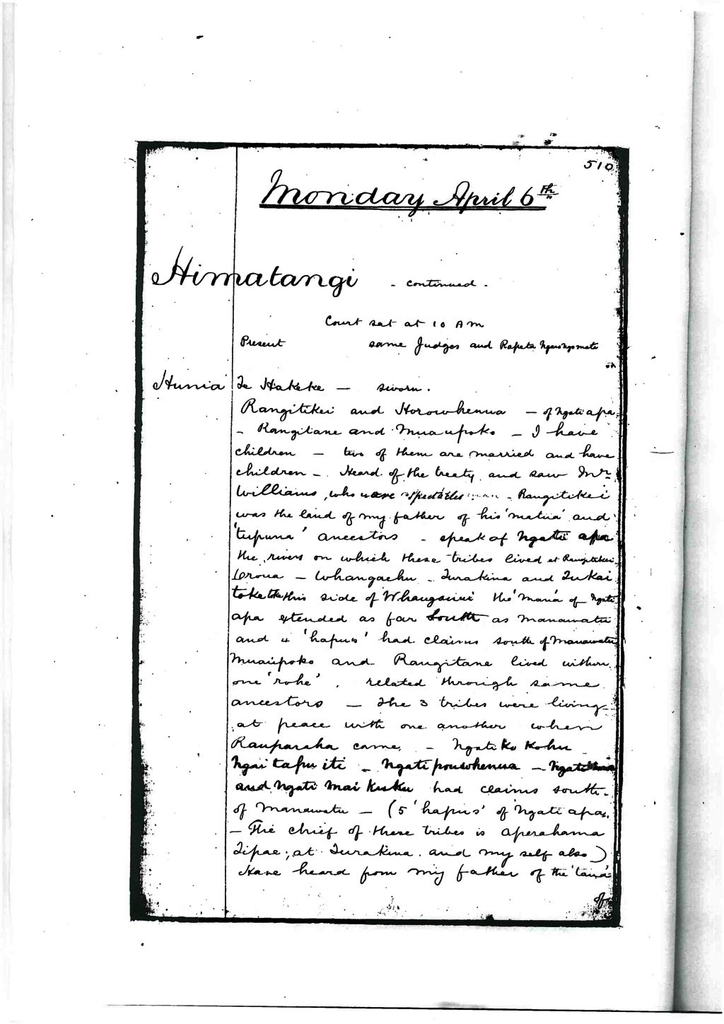 510
Monday April 6th
Himatangi - continued -
Court sat at 10 A m
Present same Judges and Rapata
Hunia Te Hakeke — sworn.
Rangitikei and Horowhenua — of Ngati apa
- Rangitane and Muaupoko — I have
children — two of them are married and have
children — Heard of the treaty and saw Mr
Williams, who - Rangitikei
was the land of my father of his 'matua' and
'tupuna' ancestors - speak of Ngati apa
the rivers on which these tribes lived at Rangitikei
Oroua — Whangaehu - Turakina and
this side of Whanganui the 'Mana' of Ngati
apa extended as far South as Manawatu
and 4 'hapus' had claims south of Manawatu
Muaupoko and Rangitane lived within
one 'rohe', related through same
ancestors — The 3 tribes were living
at peace with one another when
Rauparaha came, - Ngati Ko Kohu
Ngai tapu iti - Ngati pouwhenua -
and Ngati Mai Kuku had claims south
of Manawatu — (5 'hapus' of Ngati apa,
— The chief of these tribes is Aperahama
Tipae, at Turakina. and my self also)
Have heard from my father of the 'take'
of